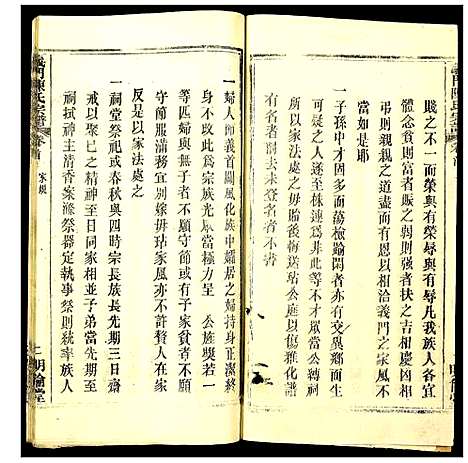 賤之不一而榮與有榮辱與有辱凡我族人各宜
體念貧則富者之弱則強者扶之吉相慶凶相
弔則親親之道盡而有恩以相洽義門之家風不
當如是耶
一子孫中才固多而蕩檢踰閑者亦有異鄉而生
之不得已甚至株連爲非大不
則以家法處之毋貽後悔以傷雅化譜
有名者削去未登名者不書
義門陳氏宗譜
卷首
家規
一婦人節義首關風化族中孀居之婦持身正潔終
身不改此爲宗族光當極力舉 公族獎若一
等匹婦與無子者不願守節或有子家貧者亦
不願守節務宜別嫁毋玷家風亦不許贅人在家
反是以家法處之
一祠堂祭祀或春秋與四時宗長族長先期三日齋
戒以思已之精神至日同家相並子弟當先期
祠將神主清香案滌祭器定執事祭則統率族人
二
明倫堂